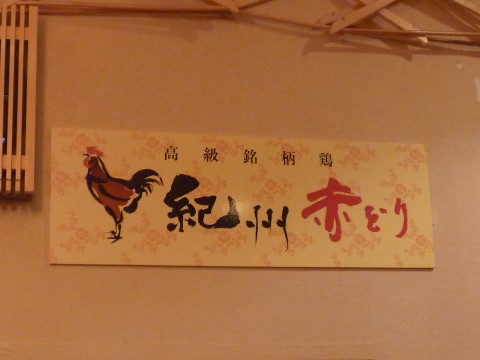 高級銘柄鶏
紀州赤どり